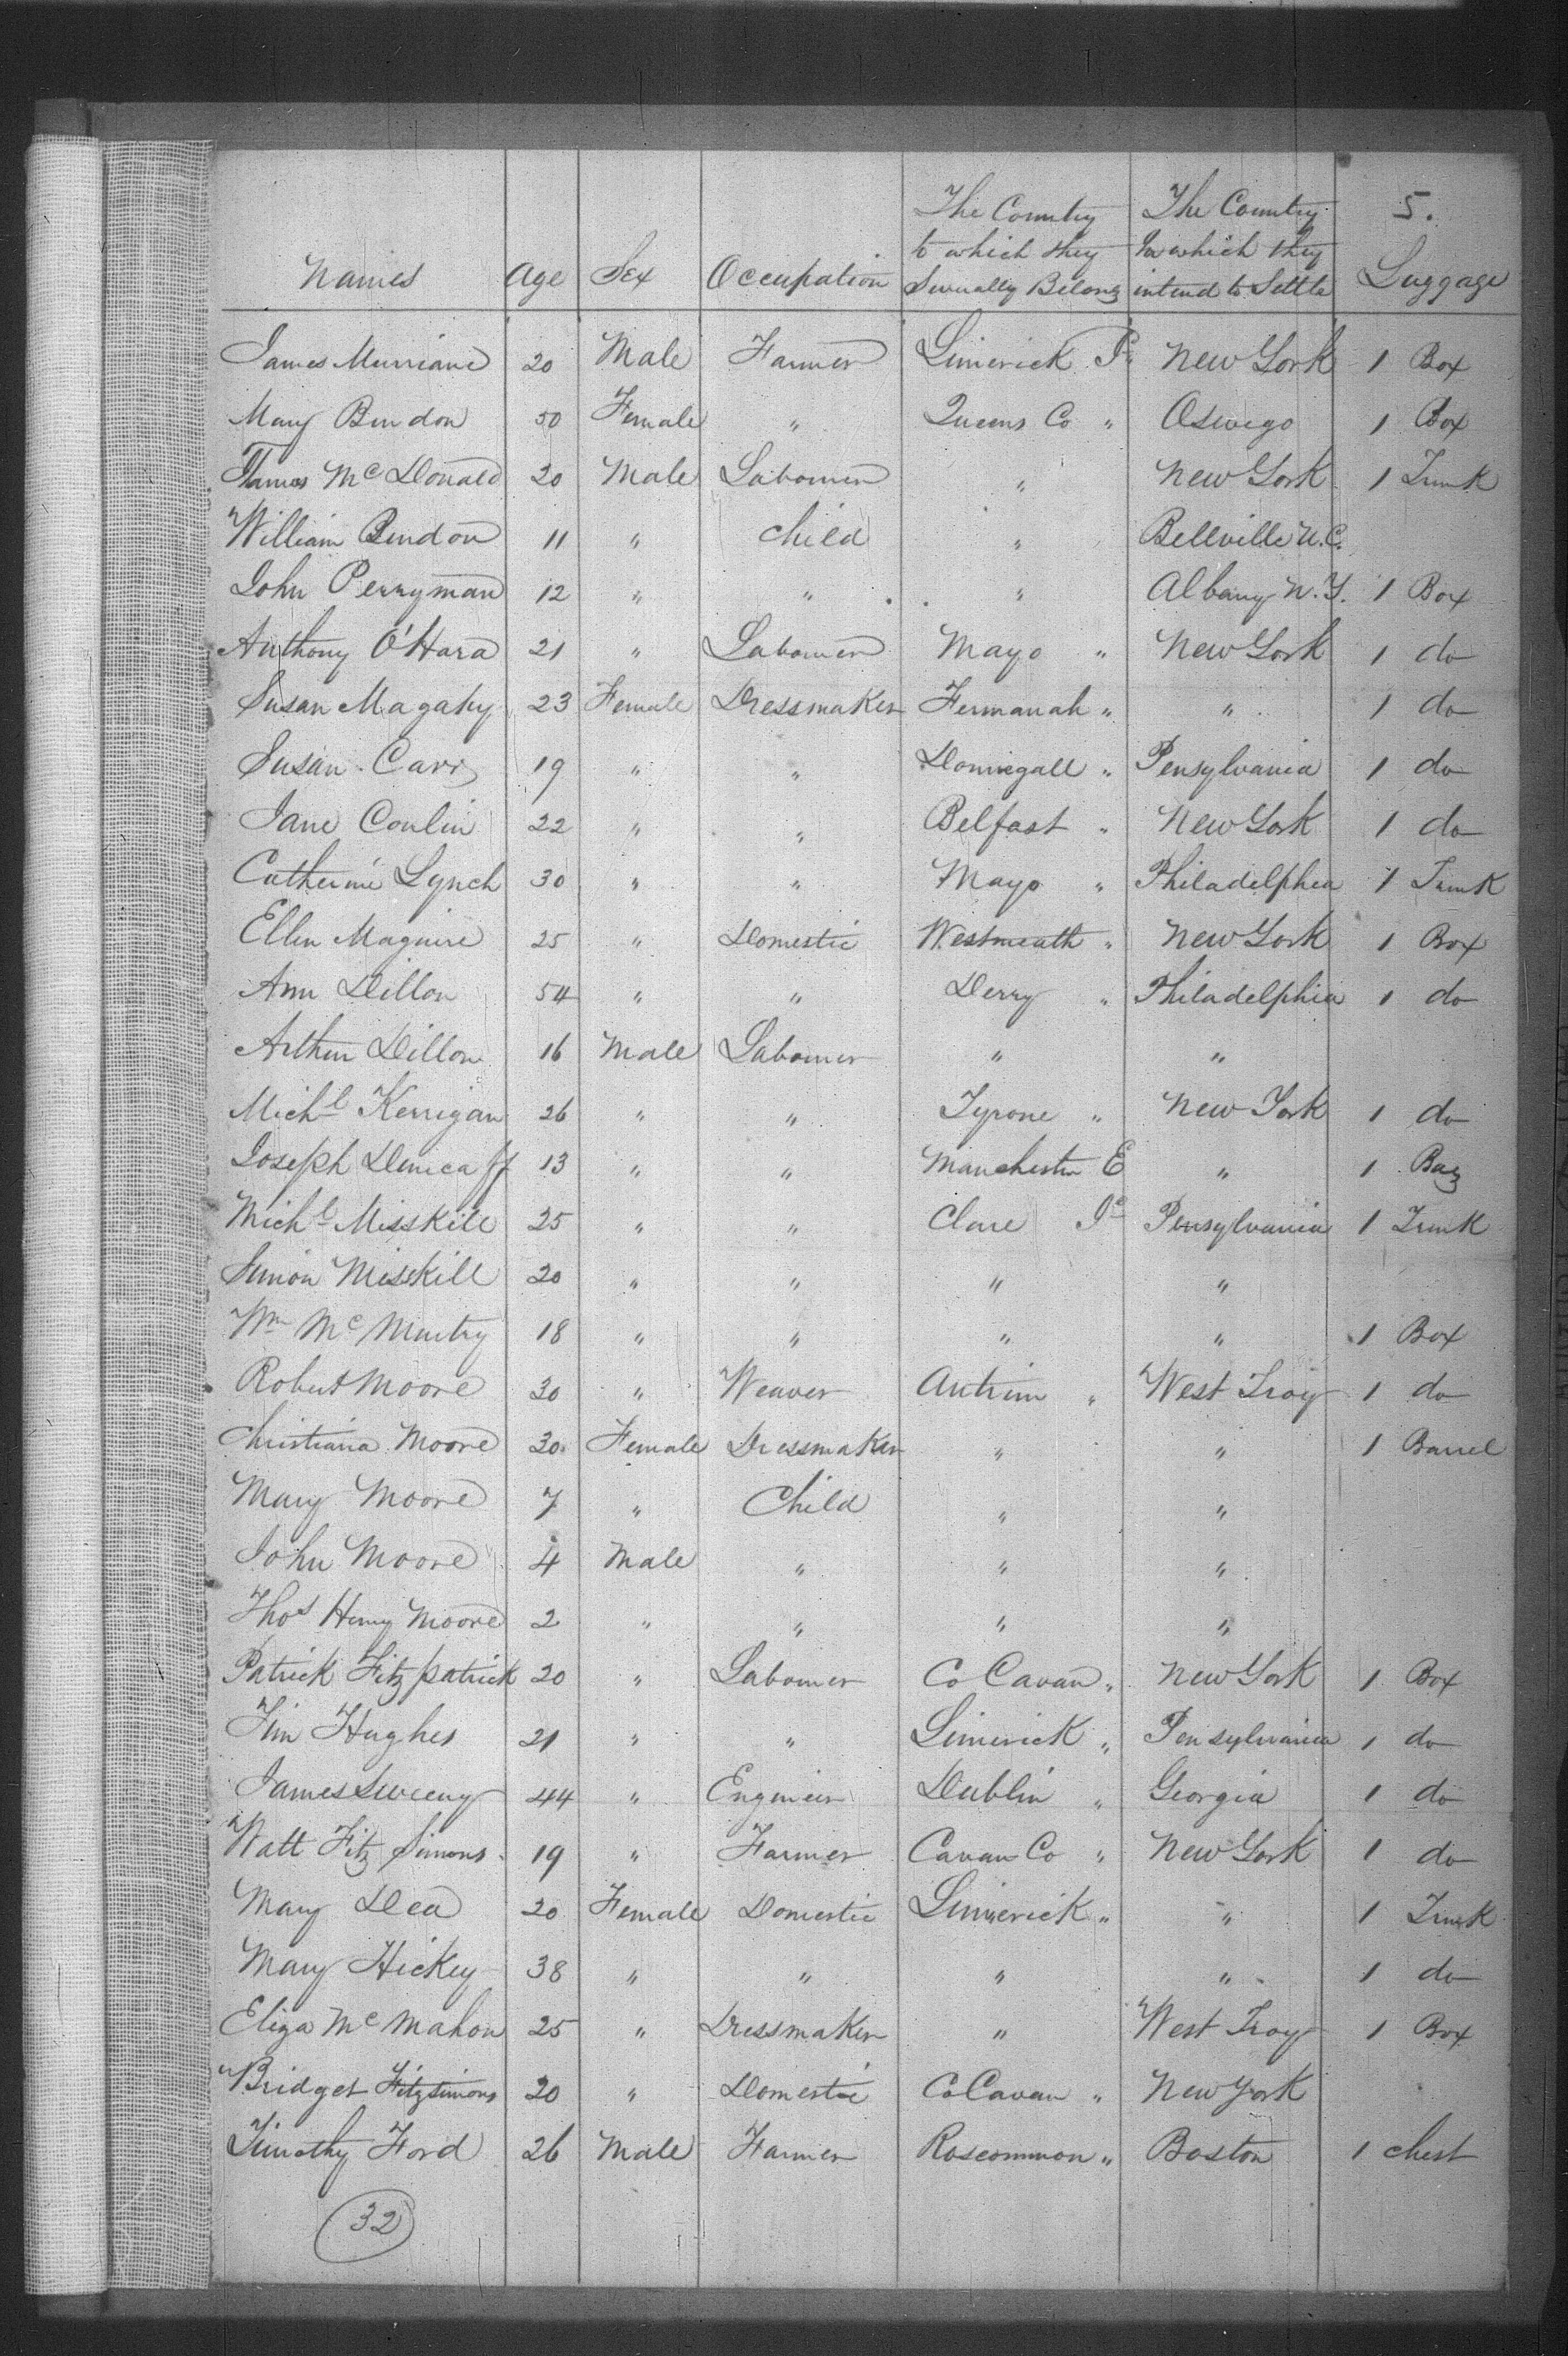 5.
Names Age Sex Occupation The Country to which they Severally Belong The Country In which they intend to Settle Luggage
James Murriane 20 Male Farmer Limerick Ir New York 1 Box
Mary Bindon 50 Female " Queens Co " Oswego 1 Box
James McDonald 20 Male Labourer " New York 1 Trunk
William Bindon 11 " child " Bellville U.C.
John Perryman 12 " " " Albany N.Y. 1 Box
Anthony O'Hara 21 " Labourer Mayo " New York 1 do
Susan Magahy 23 Female Dressmaker Fermanah " " 1 do
Susan Carr 19 " " Donnegall " Pensylvania 1 do
Jane Conlin 22 " " Belfast " New York 1 do
Catherine Lynch 30 " " Mayo " Philadelphia 1 Trunk
Ellen Maguire 25 " Domestic Westmeath " New York 1 Box
Ann Dillon 54 " " Derry " Philadelphia 1 do
Arthur Dillon 16 Male Labourer " "
Michl Kerrigan 26 " " Tyrone " New York 1 do
Joseph 13 " " Manchester E " 1 Bag
Michl Misskill 25 " " Clare Ie Pensylvania 1 Trunk
Simon Misskill 20 " " " "
Wm Mc Murtry 18 " " " " 1 Box
Robert Moore 30 " Weaver Antrim " West Troy 1 do
Christiana Moore 30 Female Dressmaker " " 1 Barrel
Mary Moore 7 " Child " "
John Moore 4 Male " " "
Thos Henry Moore 2 " " " "
Patrick Fitzpatrick 20 " Labourer Co Cavan " New York 1 Box
Tim Hughes 21 " " Limerick " Pensylvania 1 do
James Sweeny 44 " Engineer Dublin " Georgia 1 do
Watt Fitz Simons 19 " Farmer Cavan Co " New York 1 do
Mary Dea 20 Female Domestic Limerick " " 1 Trunk
Mary Hickey 38 " " " " 1 do
Eliza McMahon 25 " Dressmaker " West Troy 1 Box
Bridget Fitzsimons 20 " Domestic Co Cavan " New York
Timothy Ford 26 Male Farmer Roscommon " Boston 1 chest
32